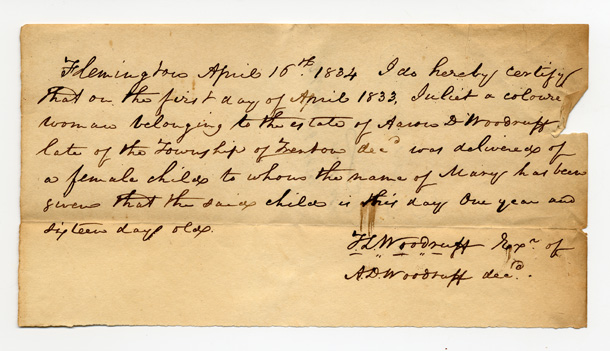 Flemington April 16th. 1834 I do hereby certify
that on the first day of April 1833, Juliet a coloure
woman belonging to the estate of Aaron D Woodruff
late of the Township of Trenton decd was delivered of
a female child to whom the name of Mary has been
given that the said child is this day One year and
sixteen days old.
T L Woodruff Exr. of
A. D Woodruff decd.